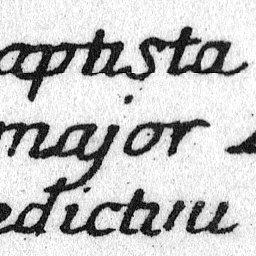 aptista
major
edictum